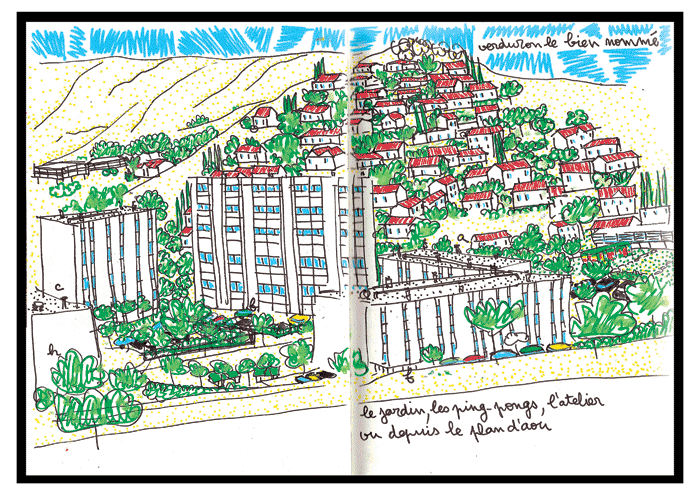 verduron le bien nommé
c
h
h
f
le jardin, les ping-pongs, l'atelier
vu depuis le plan d'aou